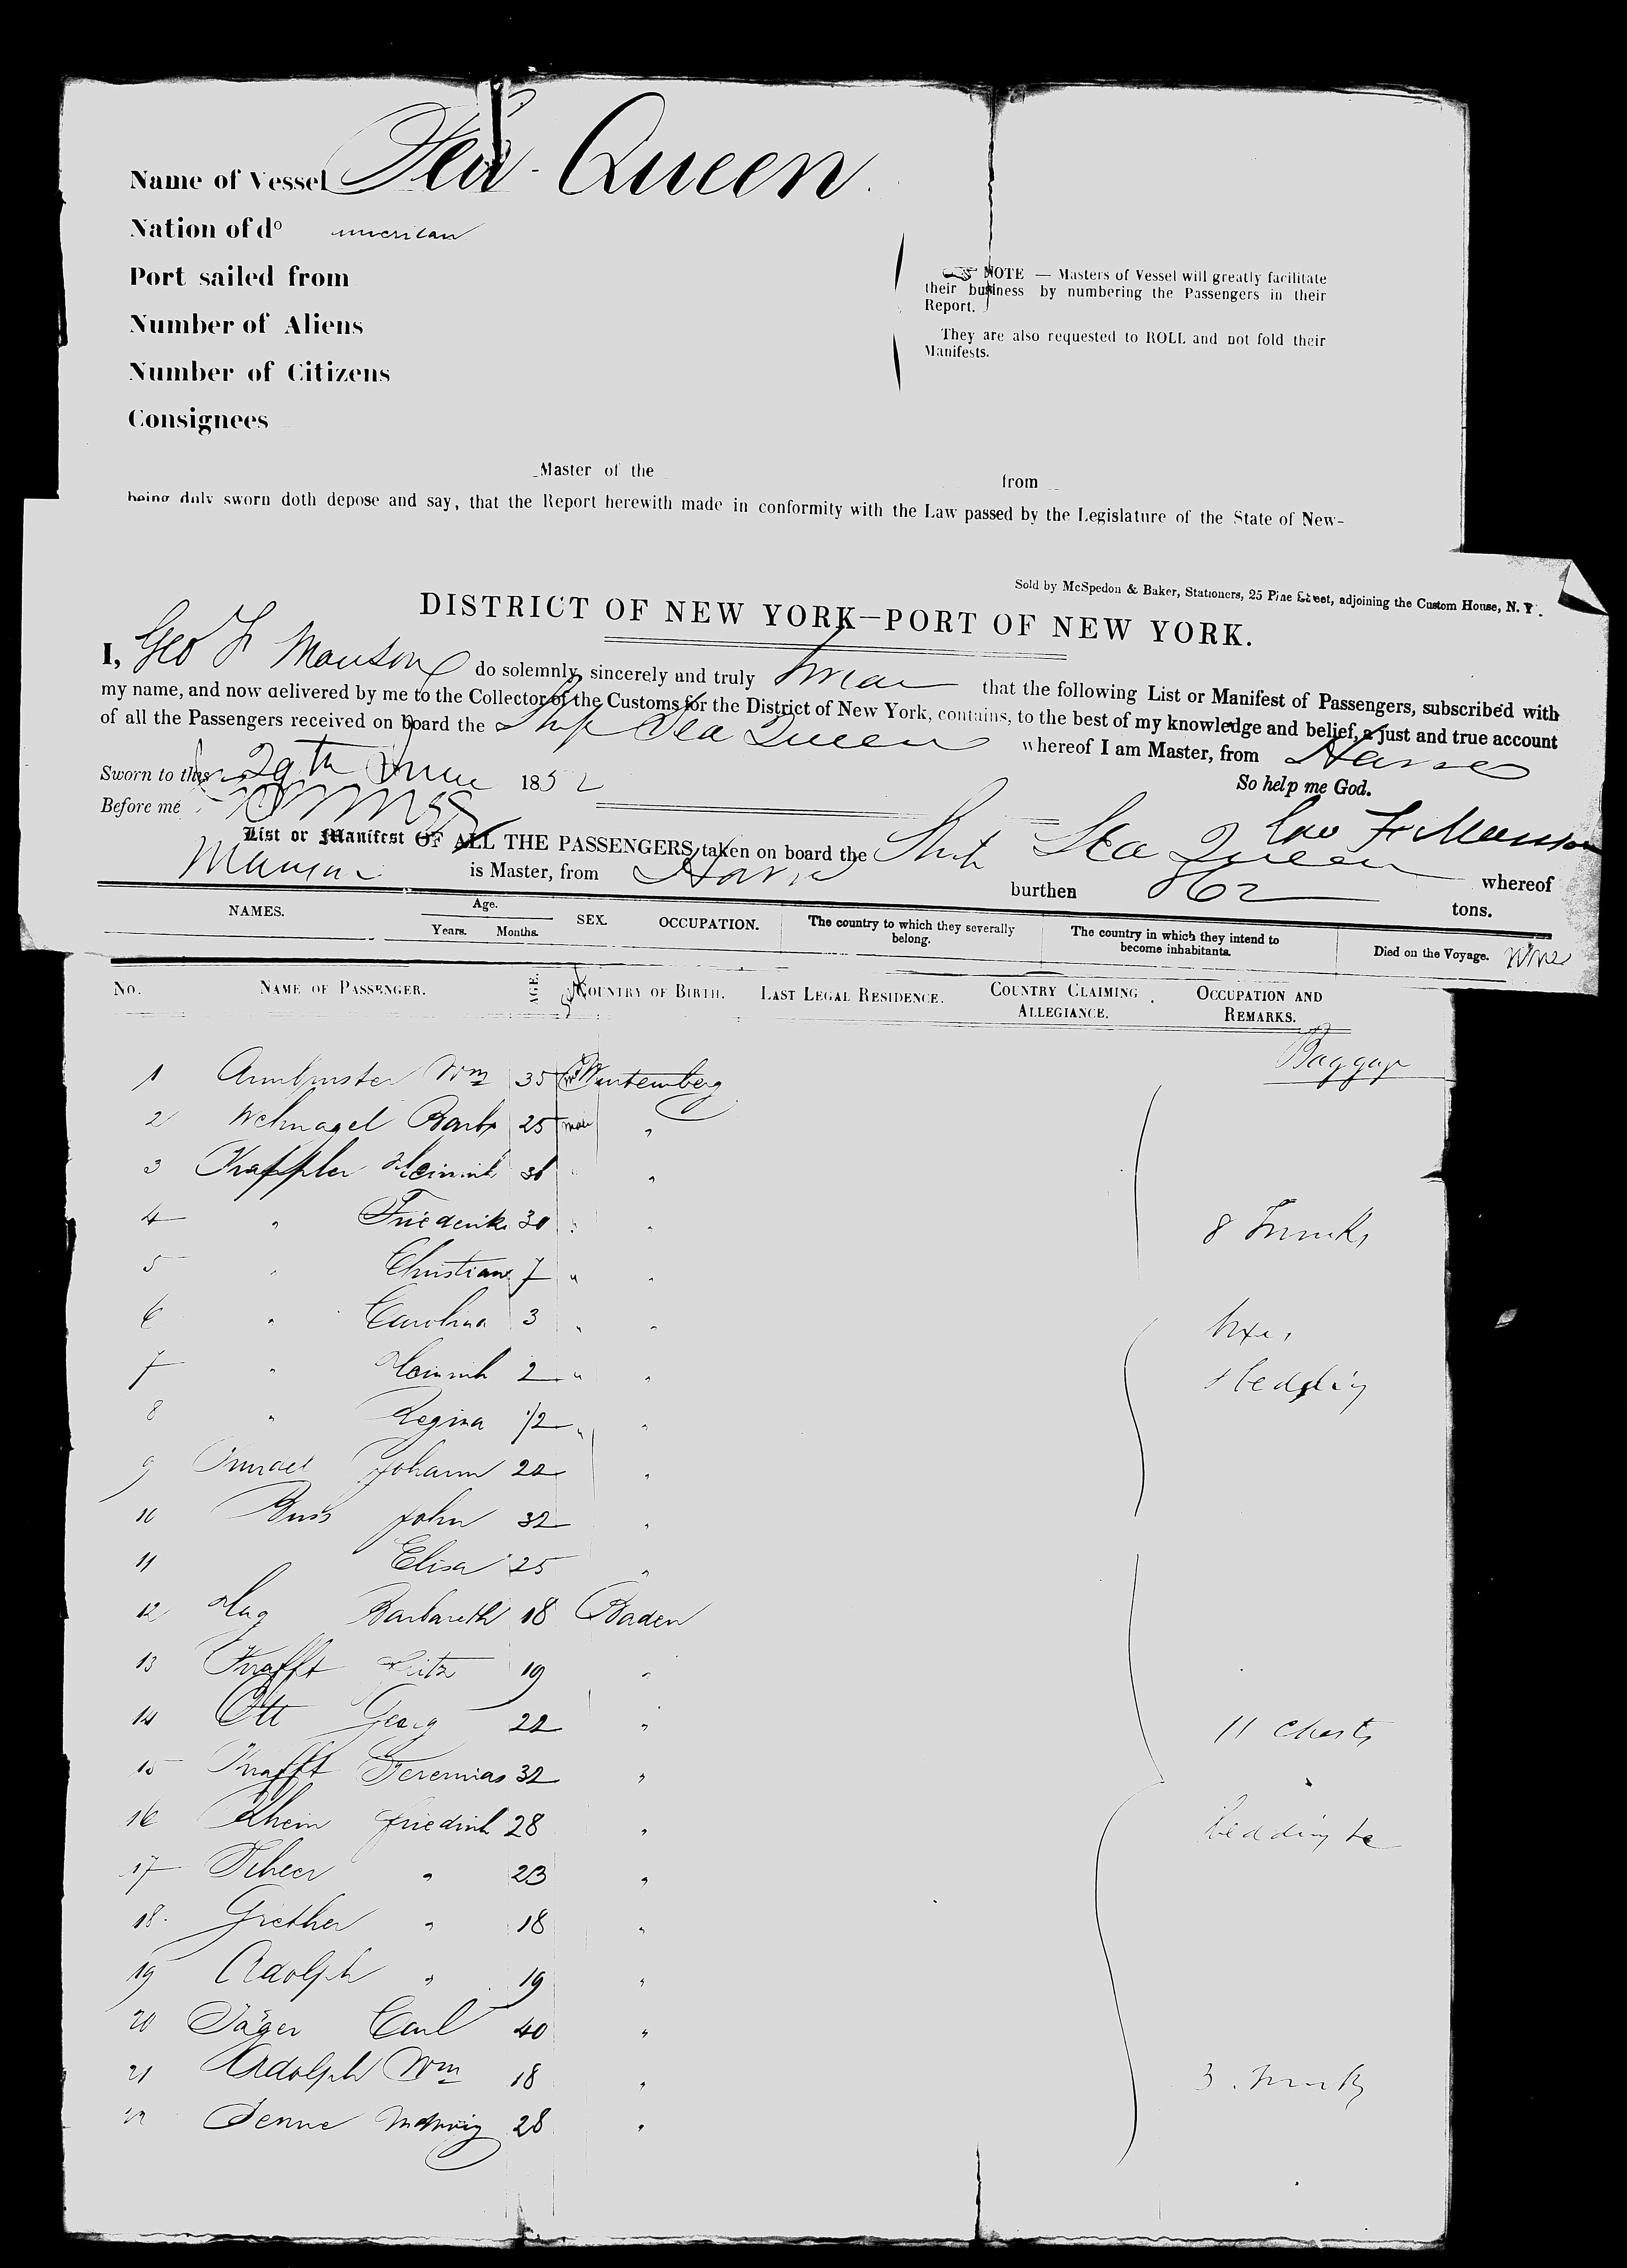 Name of Vessel Sea Queen.
Nation of do American
Port sailed from
Number of Aliens
Number of Citizens
Consignees
NOTE — Masters of Vessel will greatly facilitate
their business by numbering the Passengers in their
Report.
They are also requested to ROLL and not fold their
Manifests.
Master of the from
being duly sworn doth depose and say, that the Report herewith made in conformity with the Law passed by the Legislature of the State of New-
Sold by McSpedon & Baker, Stationers, 25 Pine Street, adjoining the Custom House, N. Y.
DISTRICT OF NEW YORK—PORT OF NEW YORK.
I, Geo F Manson do solemnly, sincerely and truly swear that the following List or Manifest of Passengers, subscribed with
my name, and now delivered by me to the Collector of the Customs for the District of New York, contains, to the best of my knowledge and belief, a just and true account
of all the Passengers received on board the Ship Sea Queen whereof I am Master, from Havre
Sworn to this 29th June 1852 So help me God.
Before me Geo F Manson
List or Manifest OF ALL THE PASSENGERS taken on board the Ship Sea Queen whereof
Manson is Master, from Havre burthen 862 tons.
NAMES. Age. Years. Months. SEX. OCCUPATION. The country to which they severally belong. The country in which they intend to become inhabitants. Died on the Voyage.
No. NAME OF PASSENGER. AGE. Sex COUNTRY OF BIRTH. LAST LEGAL RESIDENCE. COUNTRY CLAIMING ALLEGIANCE. OCCUPATION AND REMARKS.
Baggage
1 Armbruster Wm 35 Wurtemberg
2 Wehnagel Barb 25 "
3 Kappler Heinrich 36 " "
4 " Friederike 30 " " 8 Trunks
5 " Christian 7 " "
6 " Carolina 3 " "
7 " Heinrich 2 " " Bedding
8 " Regina 1/2 " "
9 Johann 22 "
10 Buss John 32 "
11 Elisa 25 "
12 Hug Barbareth 18 Baden
13 Krafft Fritz 19 "
14 Ott Georg 22 " 11 Chests
15 Krafft Jeremias 32 "
16 Rhein Friedrich 28 " bedding &c
17 Scheer " 23 "
18. Grether " 18 "
19 Adolph " 19 "
20 Jäger Carl 40 "
21 Adolph Wm 18 " 3. trunks
22 Jenne 28 "